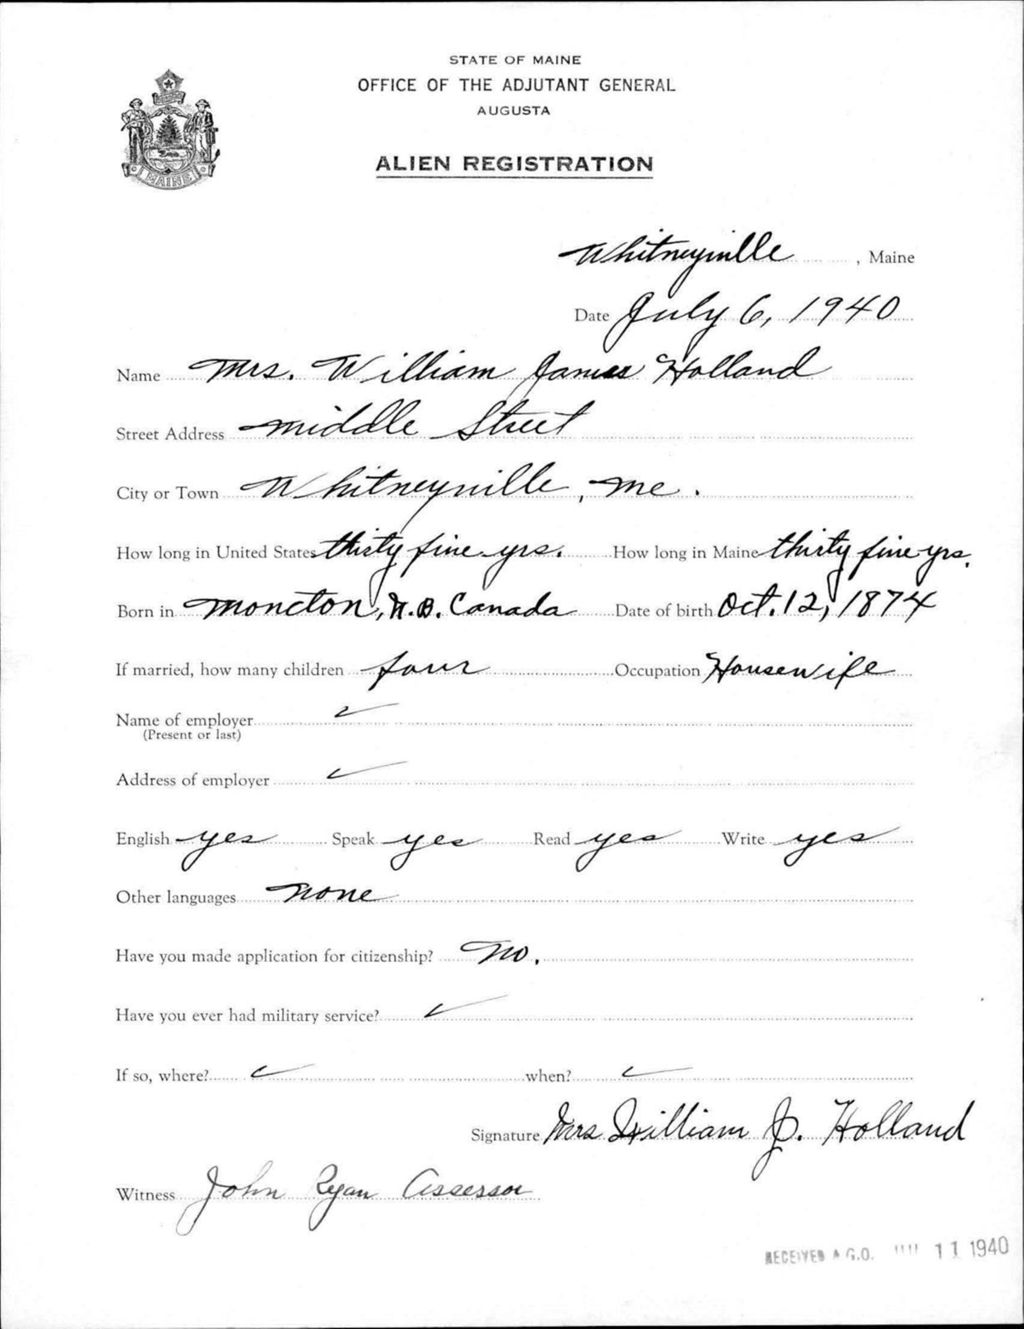 STATE OF MAINE
OFFICE OF THE ADJUTANT GENERAL
AUGUSTA
ALIEN REGISTRATION
MAINE
Whitneyville, Maine
Date July 6, 1940
Name Mrs. William James Holland
Street Address Middle Street
City or Town Whitneyville, Me.
How long in United States thirty five yrs. How long in Maine thirty five yrs.
Born in Moncton, N.B. Canada Date of birth Oct. 12, 1874
If married, how many children four Occupation Housewife
Name of employer
(Present or last)
Address of employer
English yes Speak yes Read yes Write yes
Other languages none
Have you made application for citizenship? No.
Have you ever had military service?
If so, where? when?
Signature Mrs William J. Holland
Witness John Ryan Assessor
RECEIVED A.G.O. 11 1940